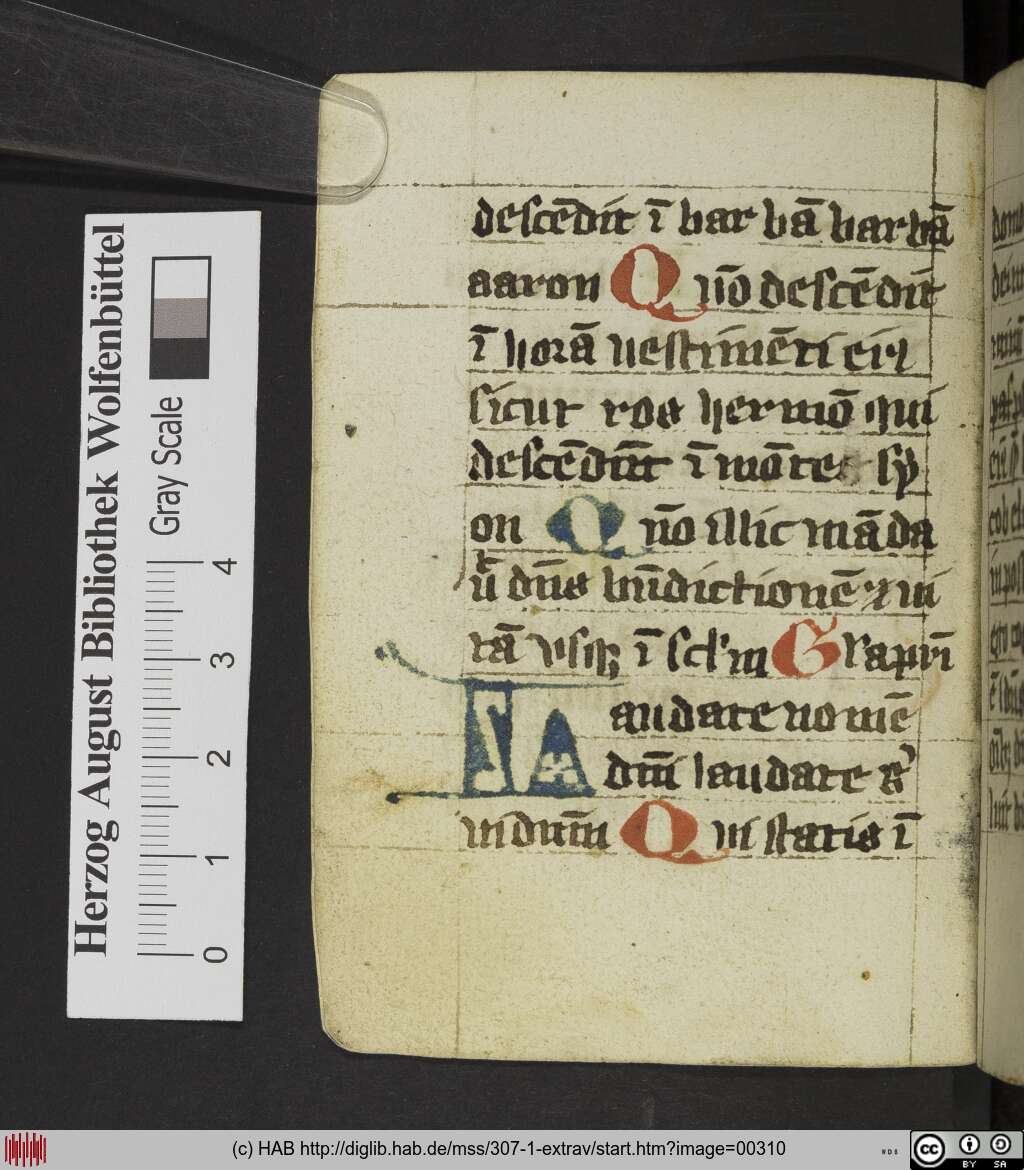 descēdit ī bar bā barbā
aaron Q uō descēdit
ī horā uestimēti eiꝰ
sicut ros hermō qui
descēdūt ī mōte sy
on Q uō illic māda
uͭ dn̄s bn̄dictionē ⁊ ui
tā usqꝫ ī scl'm Gl'a pr̄i
LAudate nomē
dn̄i laudate ẜ
ui dn̄m Q ui statis ī
Herzog August Bibliothek Wolfenbüttel
Gray Scale
0 1 2 3 4
(c) HAB http://diglib.hab.de/mss/307-1-extrav/start.htm?image=00310
cc BY SA